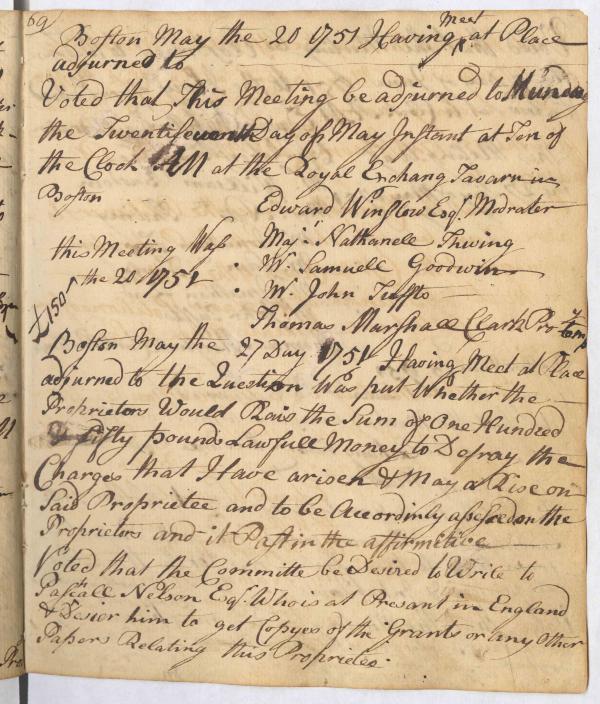 69
Boston May the 20 1751 Having meet at Place
adjurned to
Voted that This Meeting be adjurned to Munday
the Twentisewenth Day of May Instant at Ten of
the Clock AM at the Royal Exchang Tavarn in
Boston Edward Winslow Esqr. Modrater
this Meeting Wass Majr. Nathanele Thwing
the 20 1751 Mr. Samuell Goodwin
Mr. John Tuffts
£150 Thomas Marshall Clark Pro temy
Boston May the 27 Day 1751 Having Meet at Place
adjurned to the Question Was put Whether the
Proprietors Would Rais the Sum of One Hundred
& fifty pounds Lawfull Money to Defray the
Charges that Have arisen & May a Rise on
Said Proprietee and to be Accordinly assesed on the
Proprietors and it Past in the affirmitive
Voted that the Committe be Desired to Write to
Paschall Nelson Esqr. Who is at Presant in England
& Desier him to get Copyes of the Grants or any Other
Papers Relating this Proprietee